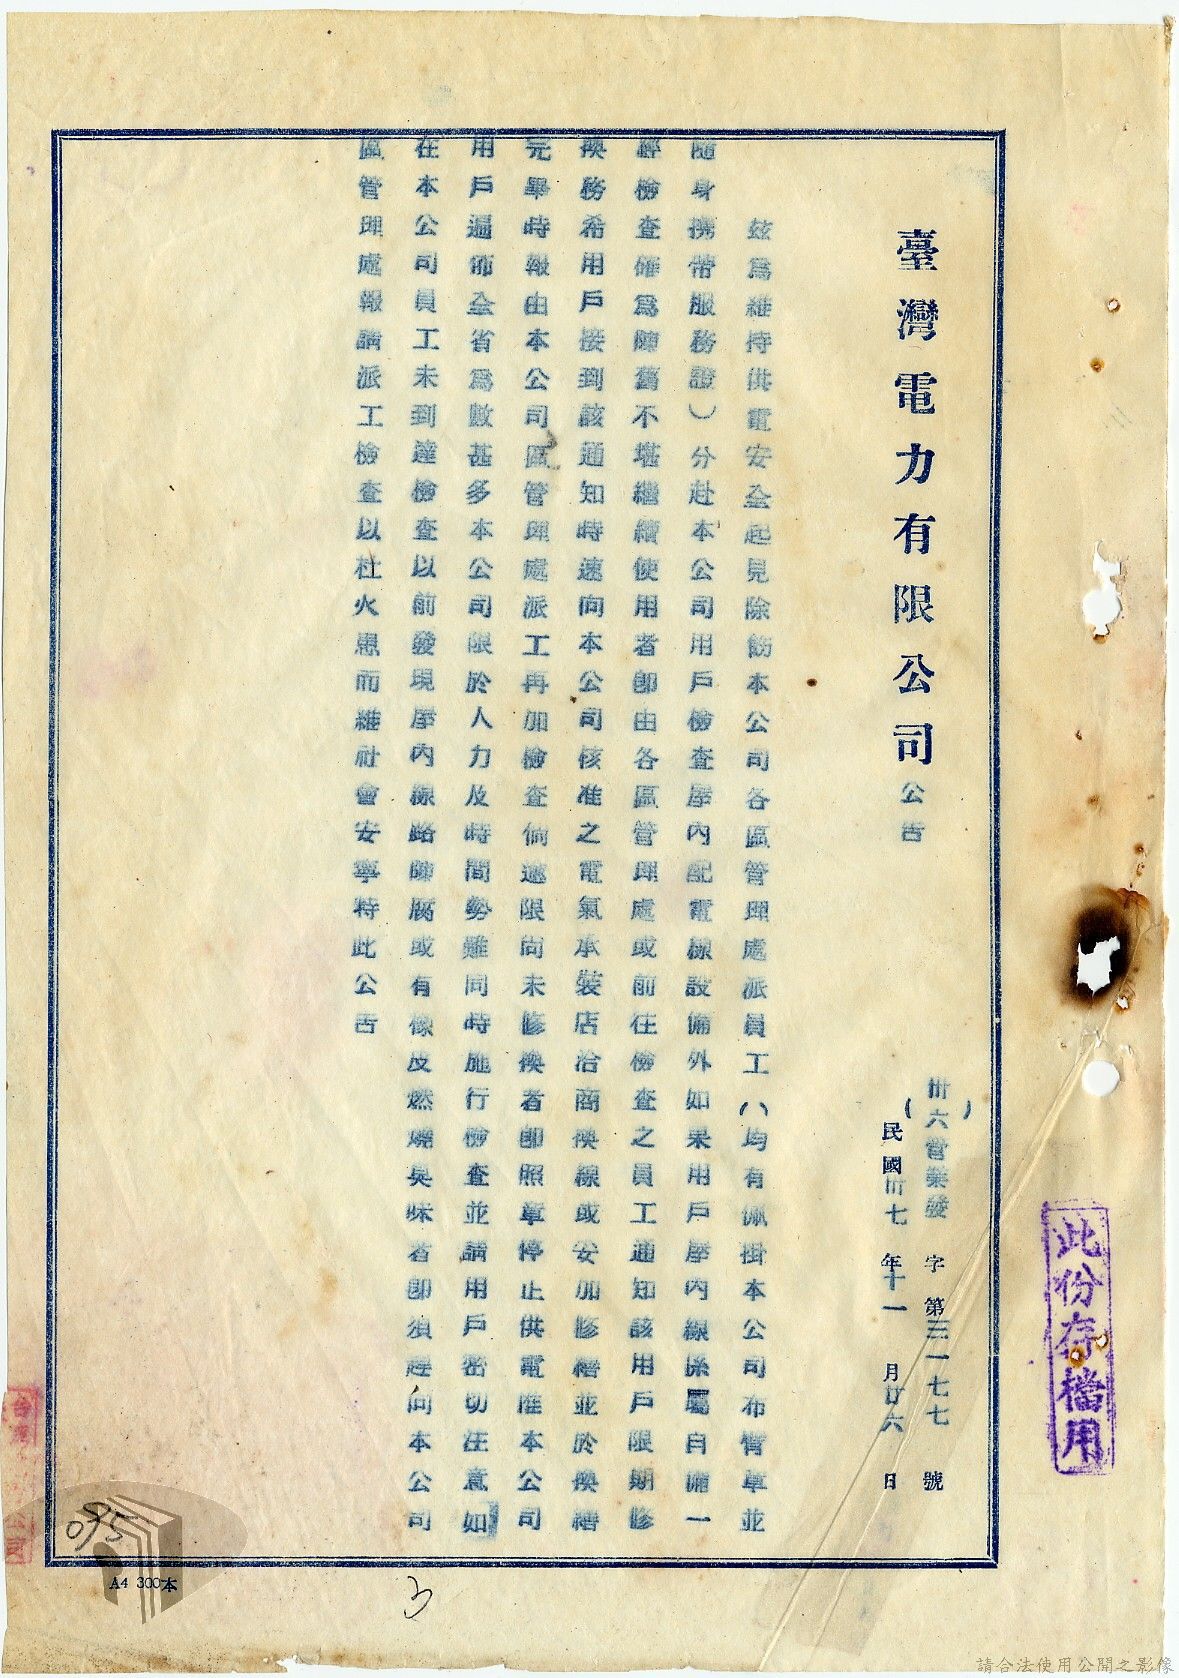 臺灣電力有限公司公告
(卅六營業發字第三一七七號)
民國卅七年十一月廿六日
茲為維持供電安全起見除飭本公司各區管理處派員工(均有佩掛本公司布臂章並
隨身携帶服務證)分赴本公司用戶檢查屋內配電線設備外如果用戶屋內線係屬自備一
經檢查確為陳舊不堪繼續使用者卽由各區管理處或前往檢查之員工通知該用戶限期修
換務希用戶接到該通知時速向本公司核准之電氣承裝店洽商換線或安加修繕並於換繕
完畢時報由本公司區管理處派工再加檢查倘逾限尚未修換者卽照章停止供電惟本公司
用戶遍佈全省為數甚多本公司限於人力及時間勢難同時施行檢查並請用戶密切注意如
在本公司員工未到達檢查以前發現屋內線路陳腐或有橡皮燃燒臭味者卽須逕向本公司
區管理處報請派工檢查以杜火患而維社會安寧特此公告
此份存檔用
095
A4 300本
3
請合法使用公開之影像